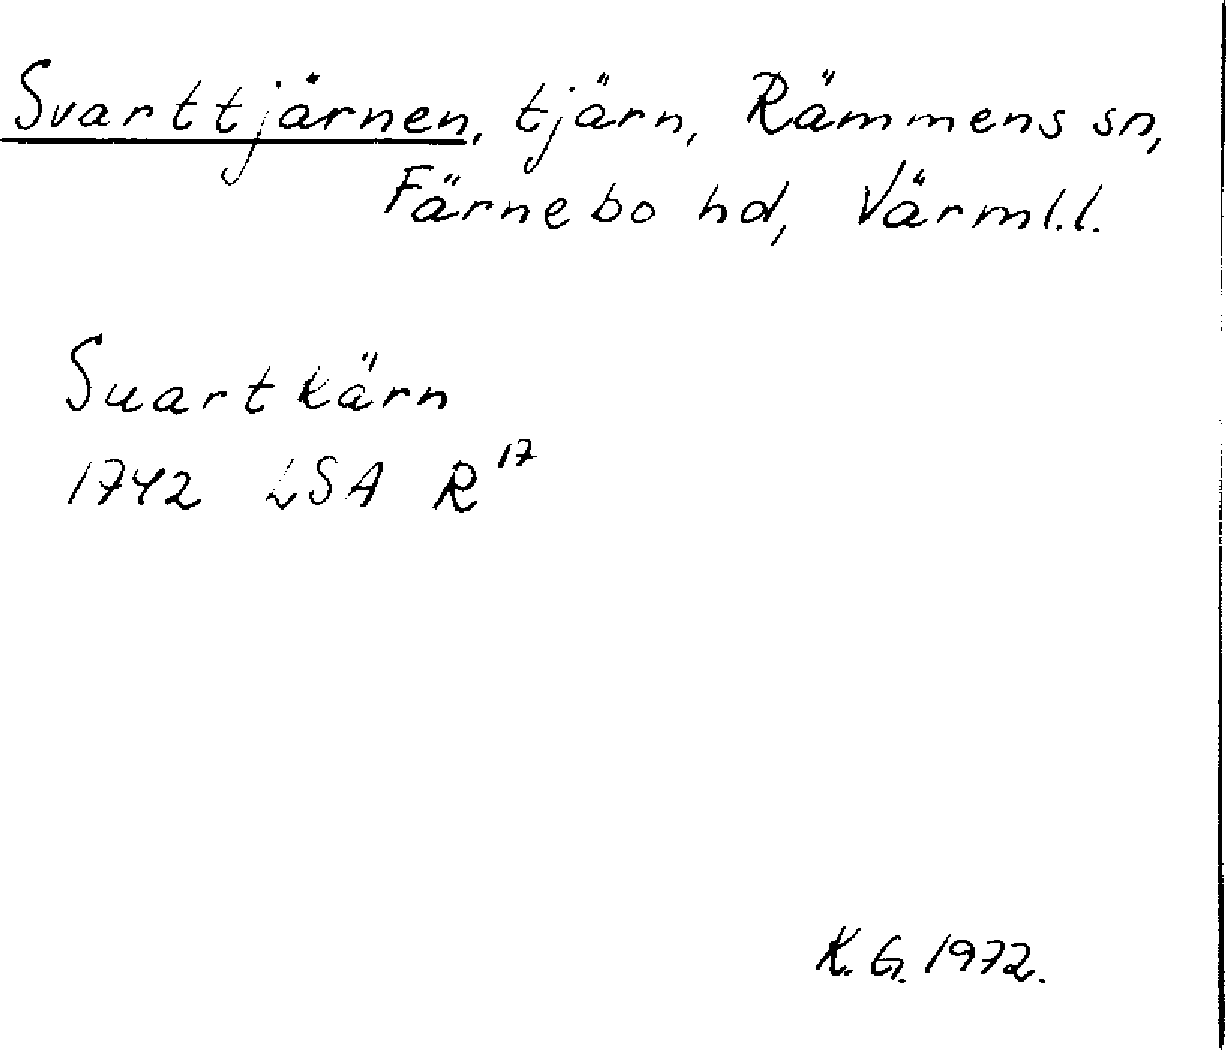 Svarttjärnen, tjärn, Rämmens sn,
Färnebo hd, Värml.l.
Suartkärn
1742 LSA R¹⁷
K.G. 1972.